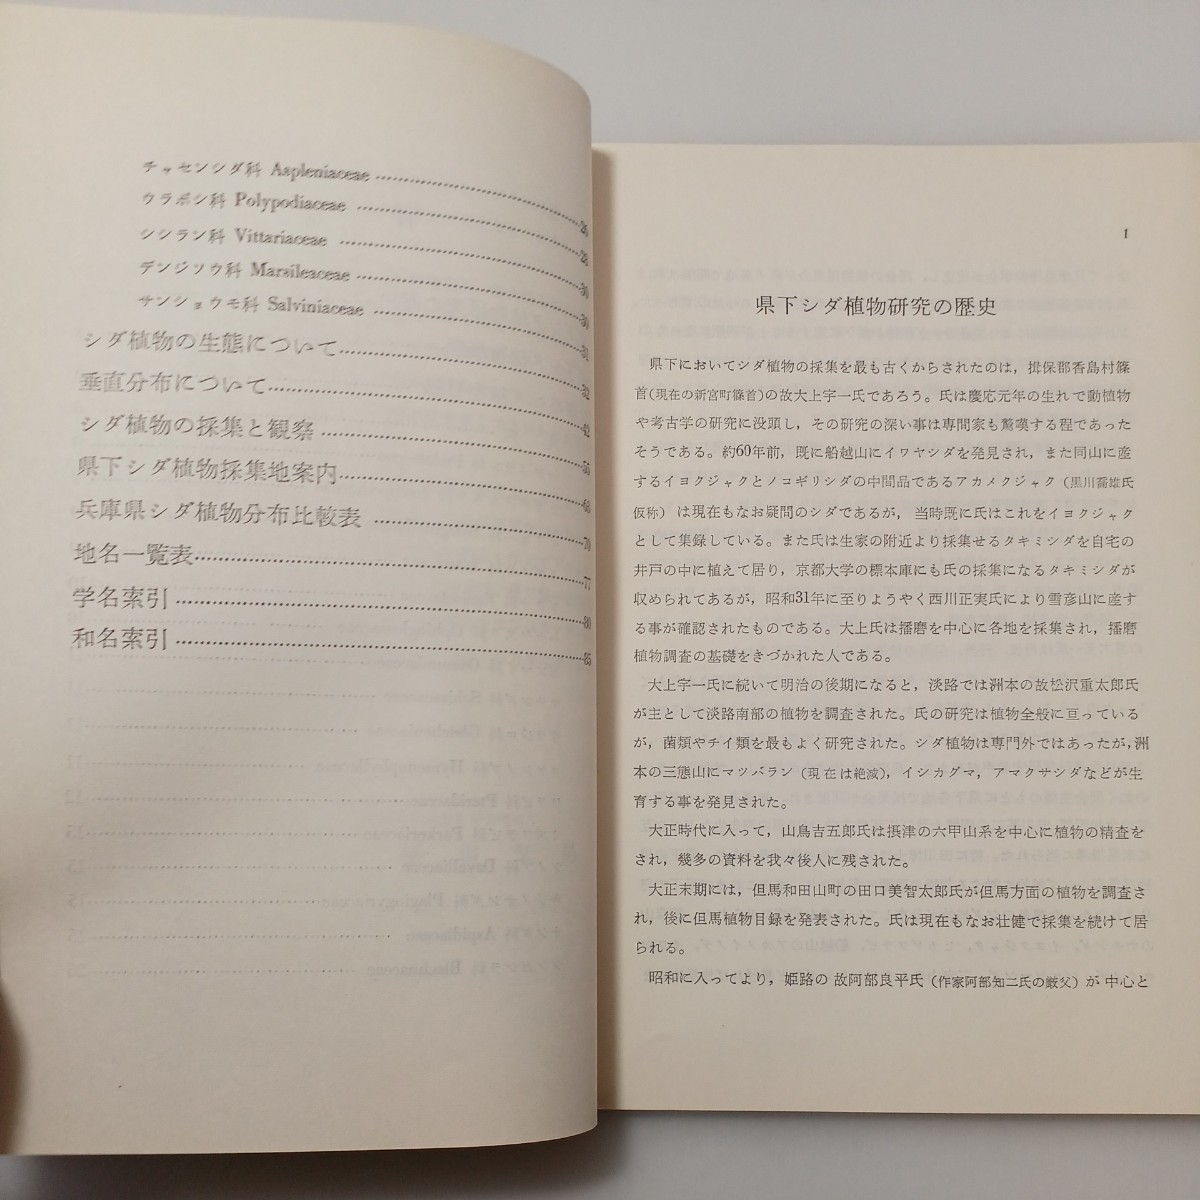 チャセンシダ科 Aspleniaceae ……………26
ウラボシ科 Polypodiaceae ……………28
シシラン科 Vittariaceae ……………30
デンジソウ科 Marsileaceae ……………30
サンショウモ科 Salviniaceae ……………31
シダ植物の生態について……………32
垂直分布について……………42
シダ植物の採集と観察 ……………55
県下シダ植物採集地案内……………68
兵庫県シダ植物分布比較表 ……………70
地名一覧表……………77
学名索引 ……………80
和名索引 ……………85
1
県下シダ植物研究の歴史
県下においてシダ植物の採集を最も古くからされたのは，揖保郡香島村篠
首(現在の新宮町篠首)の故大上宇一氏であろう。氏は慶応元年の生れで動植物
や考古学の研究に没頭し，その研究の深い事は専問家も驚嘆する程であった
そうである。約60年前，既に船越山にイワヤシダを発見され，また同山に産
するイヨクジャクとノコギリシダの中間品であるアカメクジャク（黒川喬雄氏
仮称）は現在もなお疑問のシダであるが，当時既に氏はこれをイヨクジャク
として集録している。また氏は生家の附近より採集せるタキミシダを自宅の
井戸の中に植えて居り，京都大学の標本庫にも氏の採集になるタキミシダが
収められてあるが，昭和31年に至りようやく西川正実氏により雪彦山に産す
る事が確認されたものである。大上氏は播磨を中心に各地を採集され，播磨
植物調査の基礎をきづかれた人である。
大上宇一氏に続いて明治の後期になると，淡路では洲本の故松沢重太郎氏
が主として淡路南部の植物を調査された。氏の研究は植物全般に亘っている
が，菌類やチイ類を最もよく研究された。シダ植物は専門外ではあったが，洲
本の三態山にマツバラン（現在は絶滅），イシカグマ，アマクサシダなどが生
育する事を発見された。
大正時代に入って，山鳥吉五郎氏は摂津の六甲山系を中心に植物の精査を
され，幾多の資料を我々後人に残された。
大正末期には，但馬和田山町の田口美智太郎氏が但馬方面の植物を調査さ
れ，後に但馬植物目録を発表された。氏は現在もなお壮健で採集を続けて居
られる。
昭和に入ってより，姫路の故阿部良平氏（作家阿部知二氏の厳父）が中心と